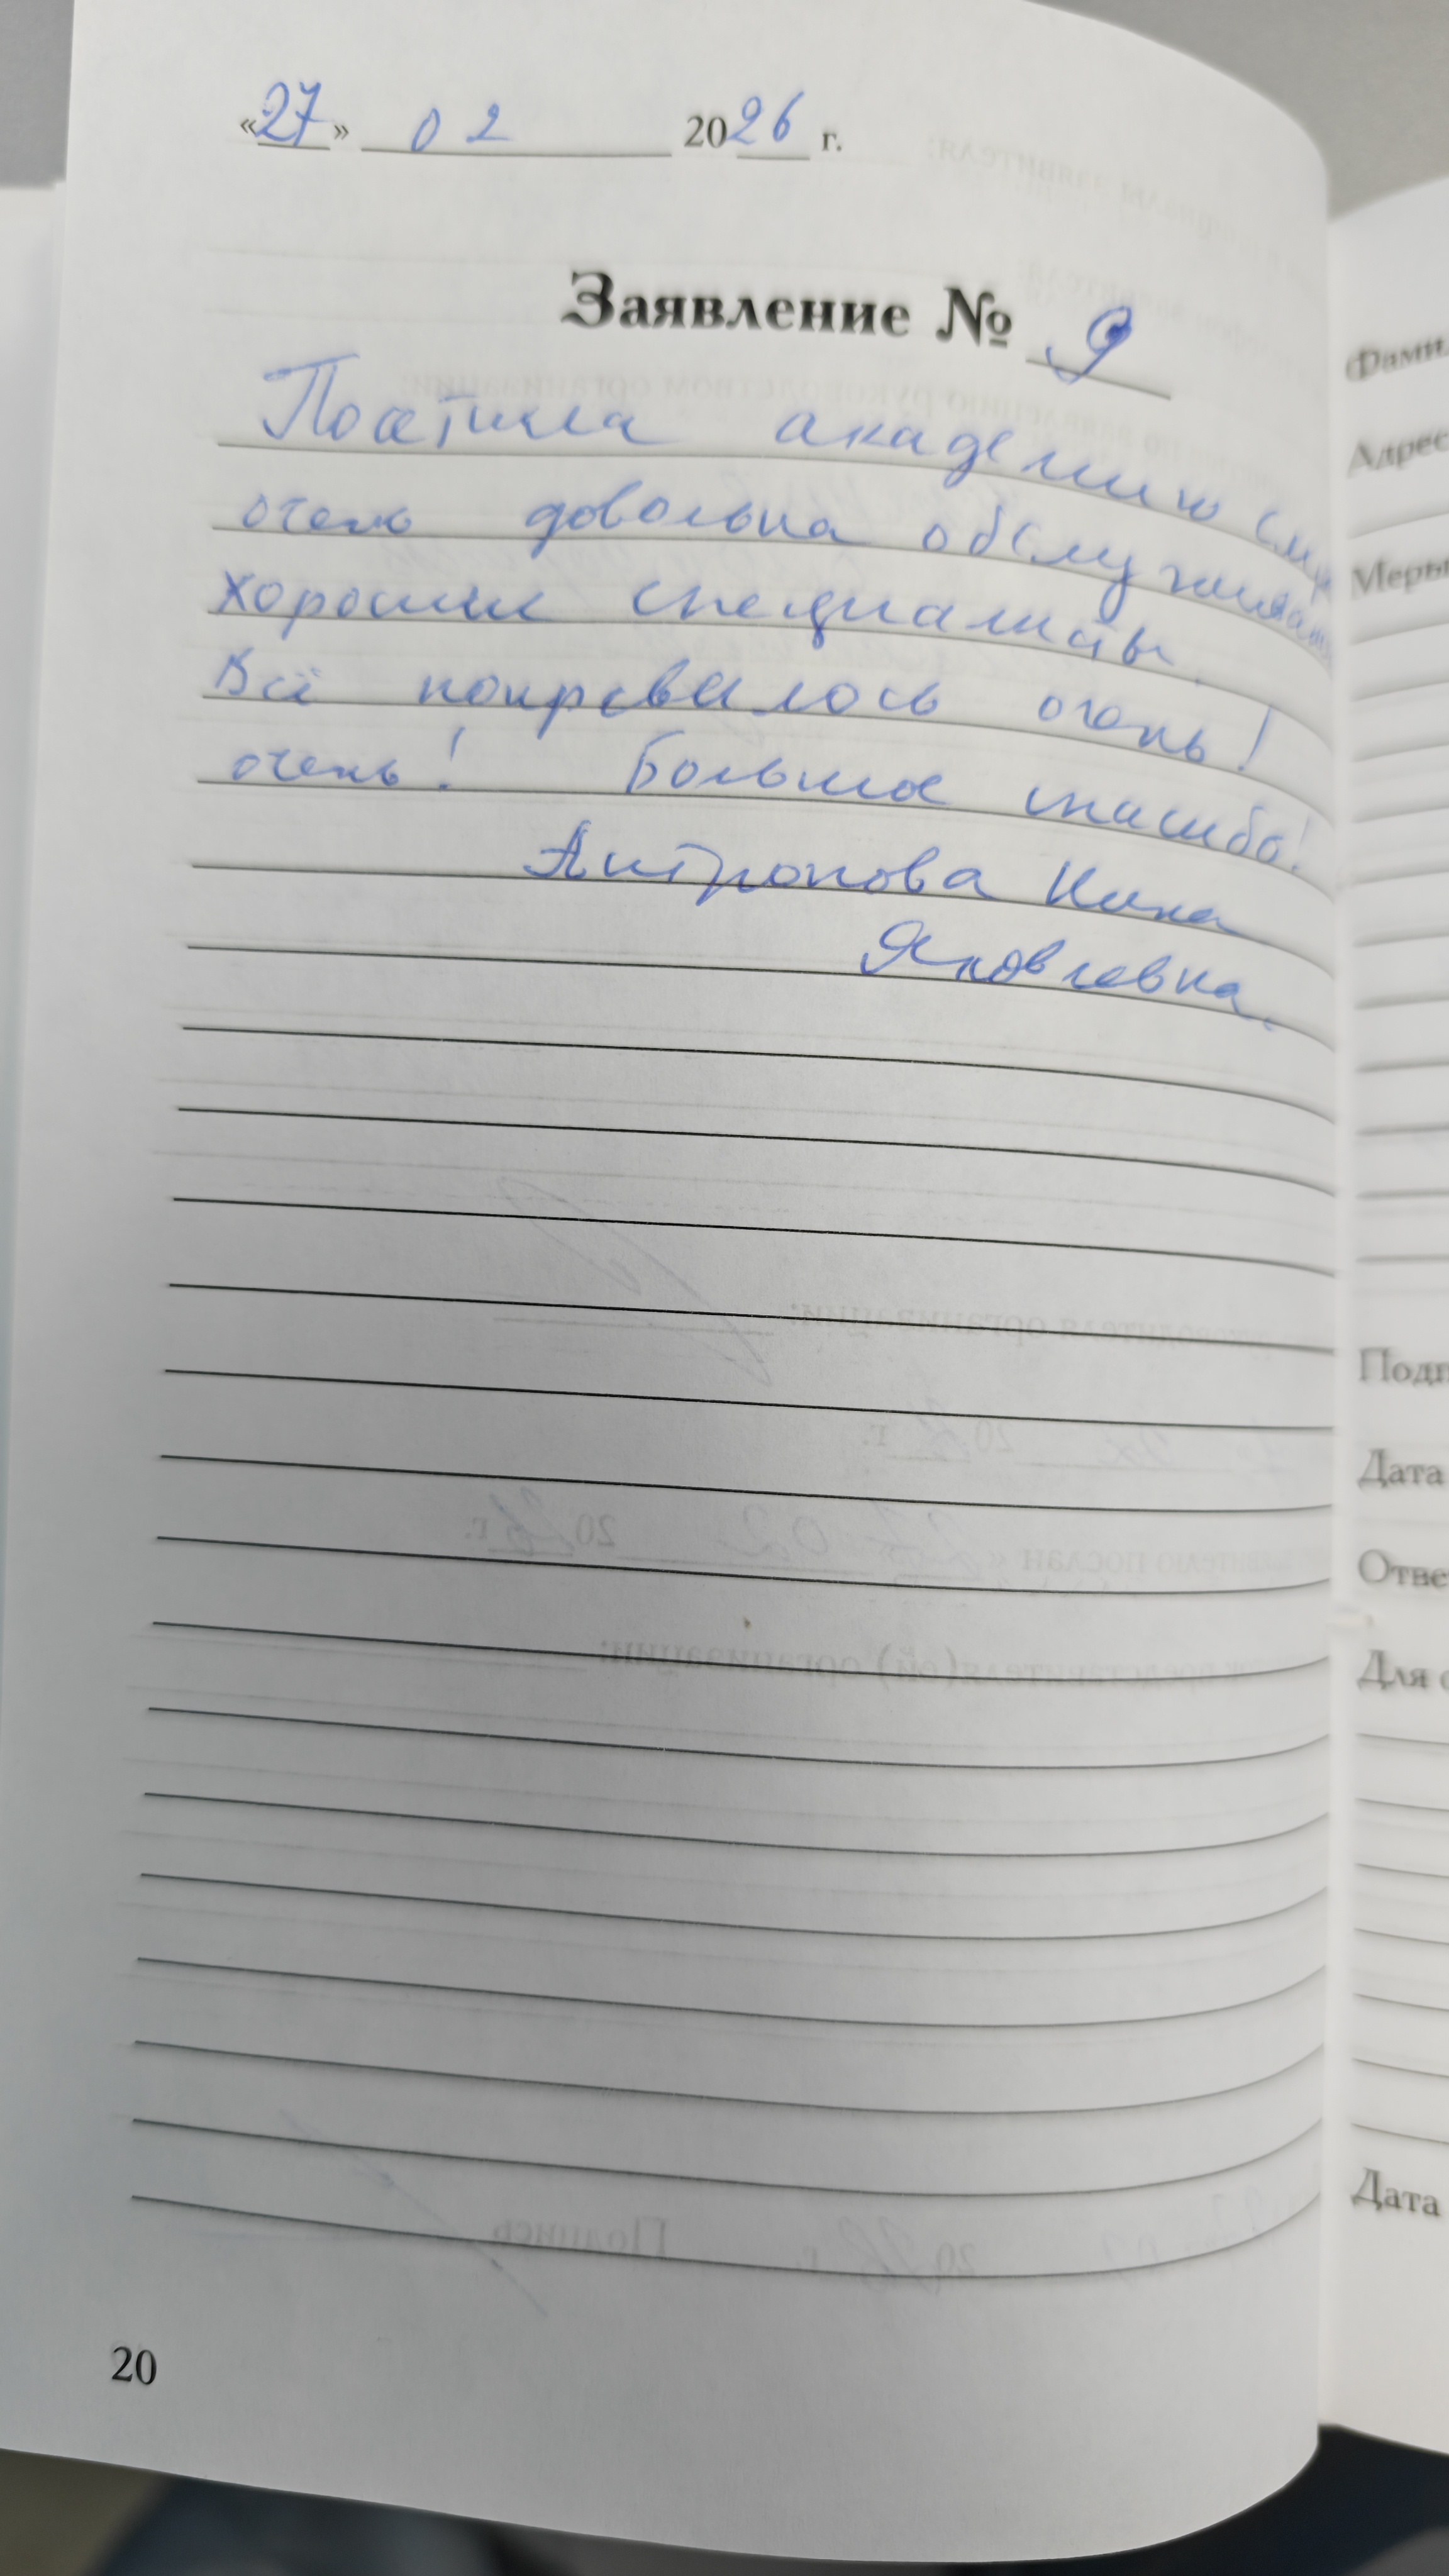 «27» 02 2026 г.
Заявление № 9
Посетила академию
очень довольна обслуживанием
хорошие специалисты
Всё понравилось очень!
очень! Большое спасибо!
Антропова Нина
Яковлевна.
20
Фами
Адрес
Меры
Подп
Дата
Отве
Для с
Дата